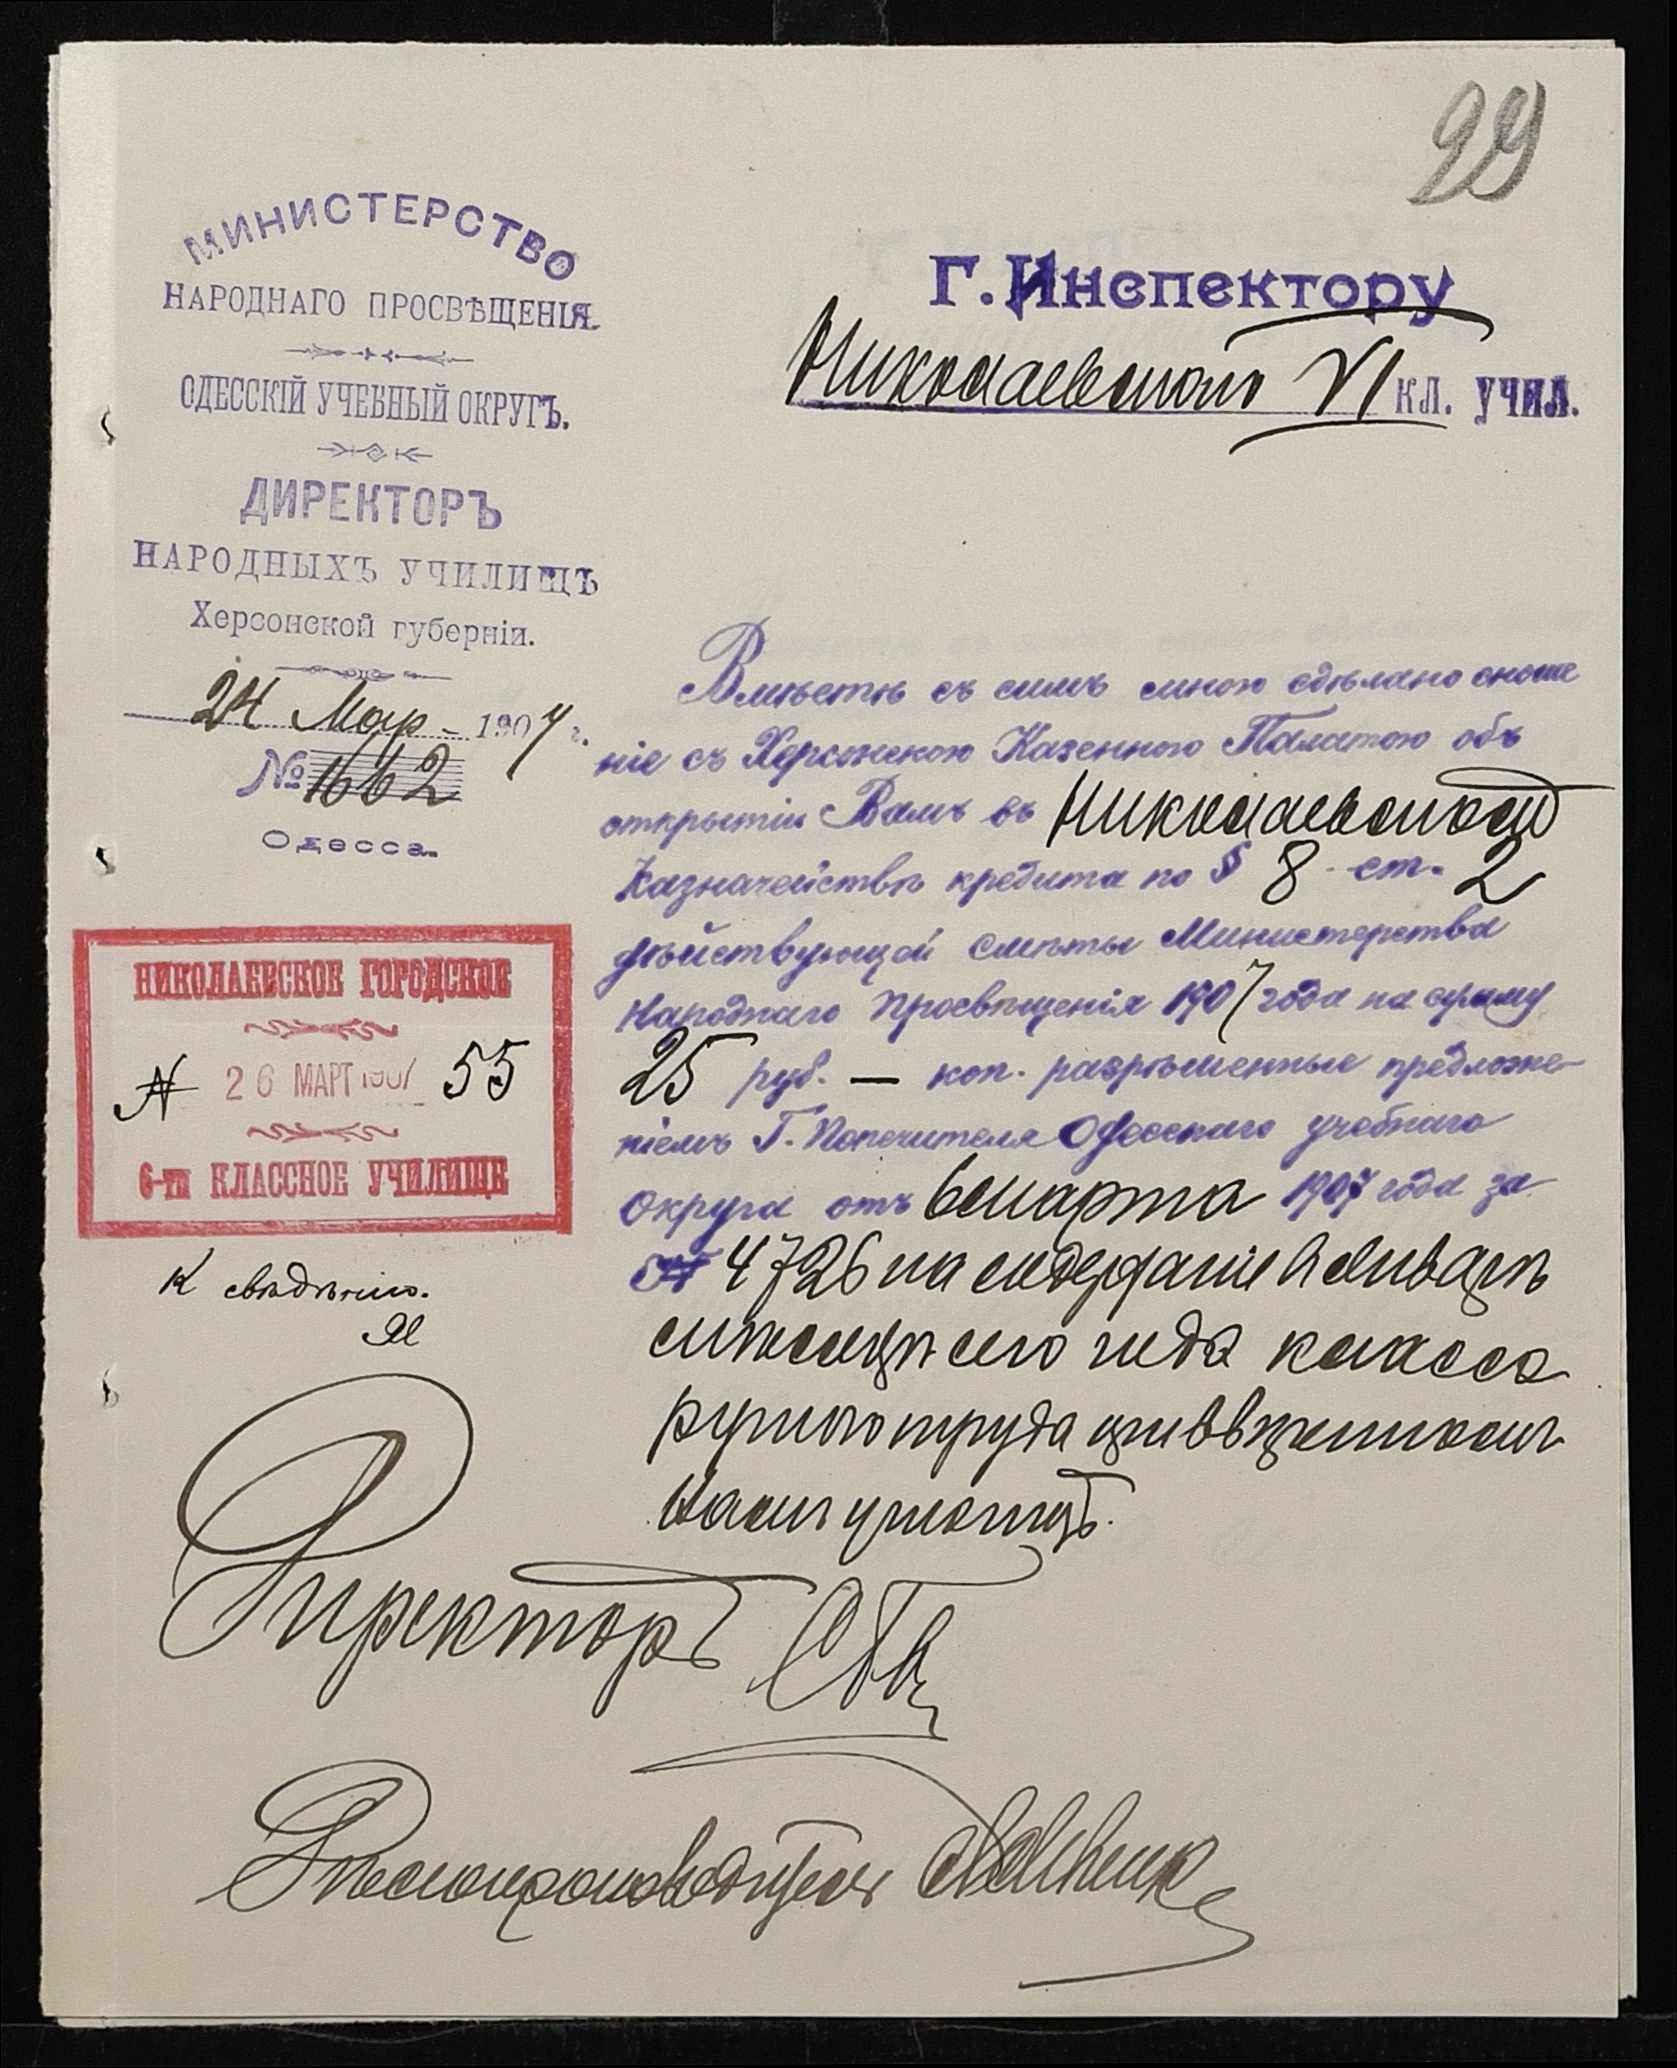 29
МИНИСТЕРСТВО
НАРОДНАГО ПРОСВѢЩЕНІЯ.
ОДЕССКІЙ УЧЕБНЫЙ ОКРУГЪ.
ДИРЕКТОРЪ
НАРОДНЫХЪ УЧИЛИЩЪ
Херсонской губерніи.
24 Мар 1907 г.
№ 1662
Одесса.
Г. Инспектору
Николаевскаго VI кл. учил.
Вмѣстѣ съ симъ мною сдѣлано сноше
ніе съ Херсонскою Казенною Палатою объ
открытіи Вамъ въ Николаевскомъ
Казначействѣ кредита по § 8 ст. 2
дѣйствующей смѣты Министерства
Народнаго Просвѣщенія 1907 года на сумму
25 руб. — коп. разрѣшенные предложе-
ніемъ Г. Попечителя Одесскаго учебнаго
Округа отъ 6 марта 1907 года за
№ 4726 на содержаніе въ
сего года класса
ручного труда при ввѣренномъ
Вамъ училищѣ.
НИКОЛАЕВСКОЕ ГОРОДСКОЕ
№ 26 МАРТ 1907 55
6-ти КЛАССНОЕ УЧИЛИЩЕ
К свѣдѣнію.
Директоръ
Дѣлопроизводитель